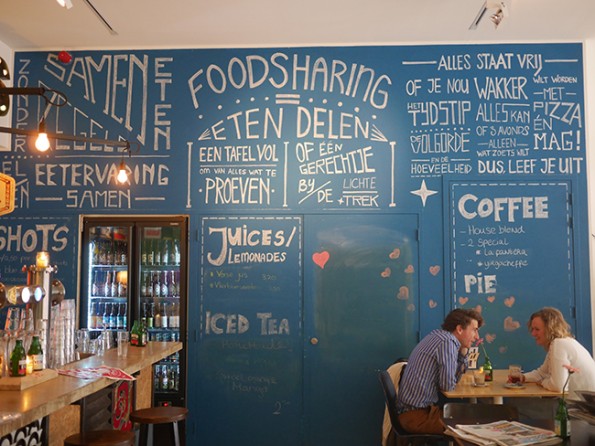 ZONDER
REGELS
SAMEN
ETEN
EETERVARING
SAMEN
SHOTS
FOODSHARING
=
ETEN DELEN
EEN TAFEL VOL
OM VAN ALLES WAT TE
PROEVEN
OF ÉÉN
GERECHTJE
BIJ DE LICHTE
TREK
ALLES STAAT VRIJ
OF JE NOU WAKKER WILT WORDEN
MET
PIZZA
ÉN
MAG!
HET
TIJDSTIP
DE
VOLGORDE
EN DE
HOEVEELHEID
ALLES KAN
OF 5 AVONDS
ALLEEN
WAT ZOETS WILT
DUS, LEEF JE UIT
JUICES/
LEMONADES
ICED TEA
COFFEE
- House blend
- 2 Special
PIE